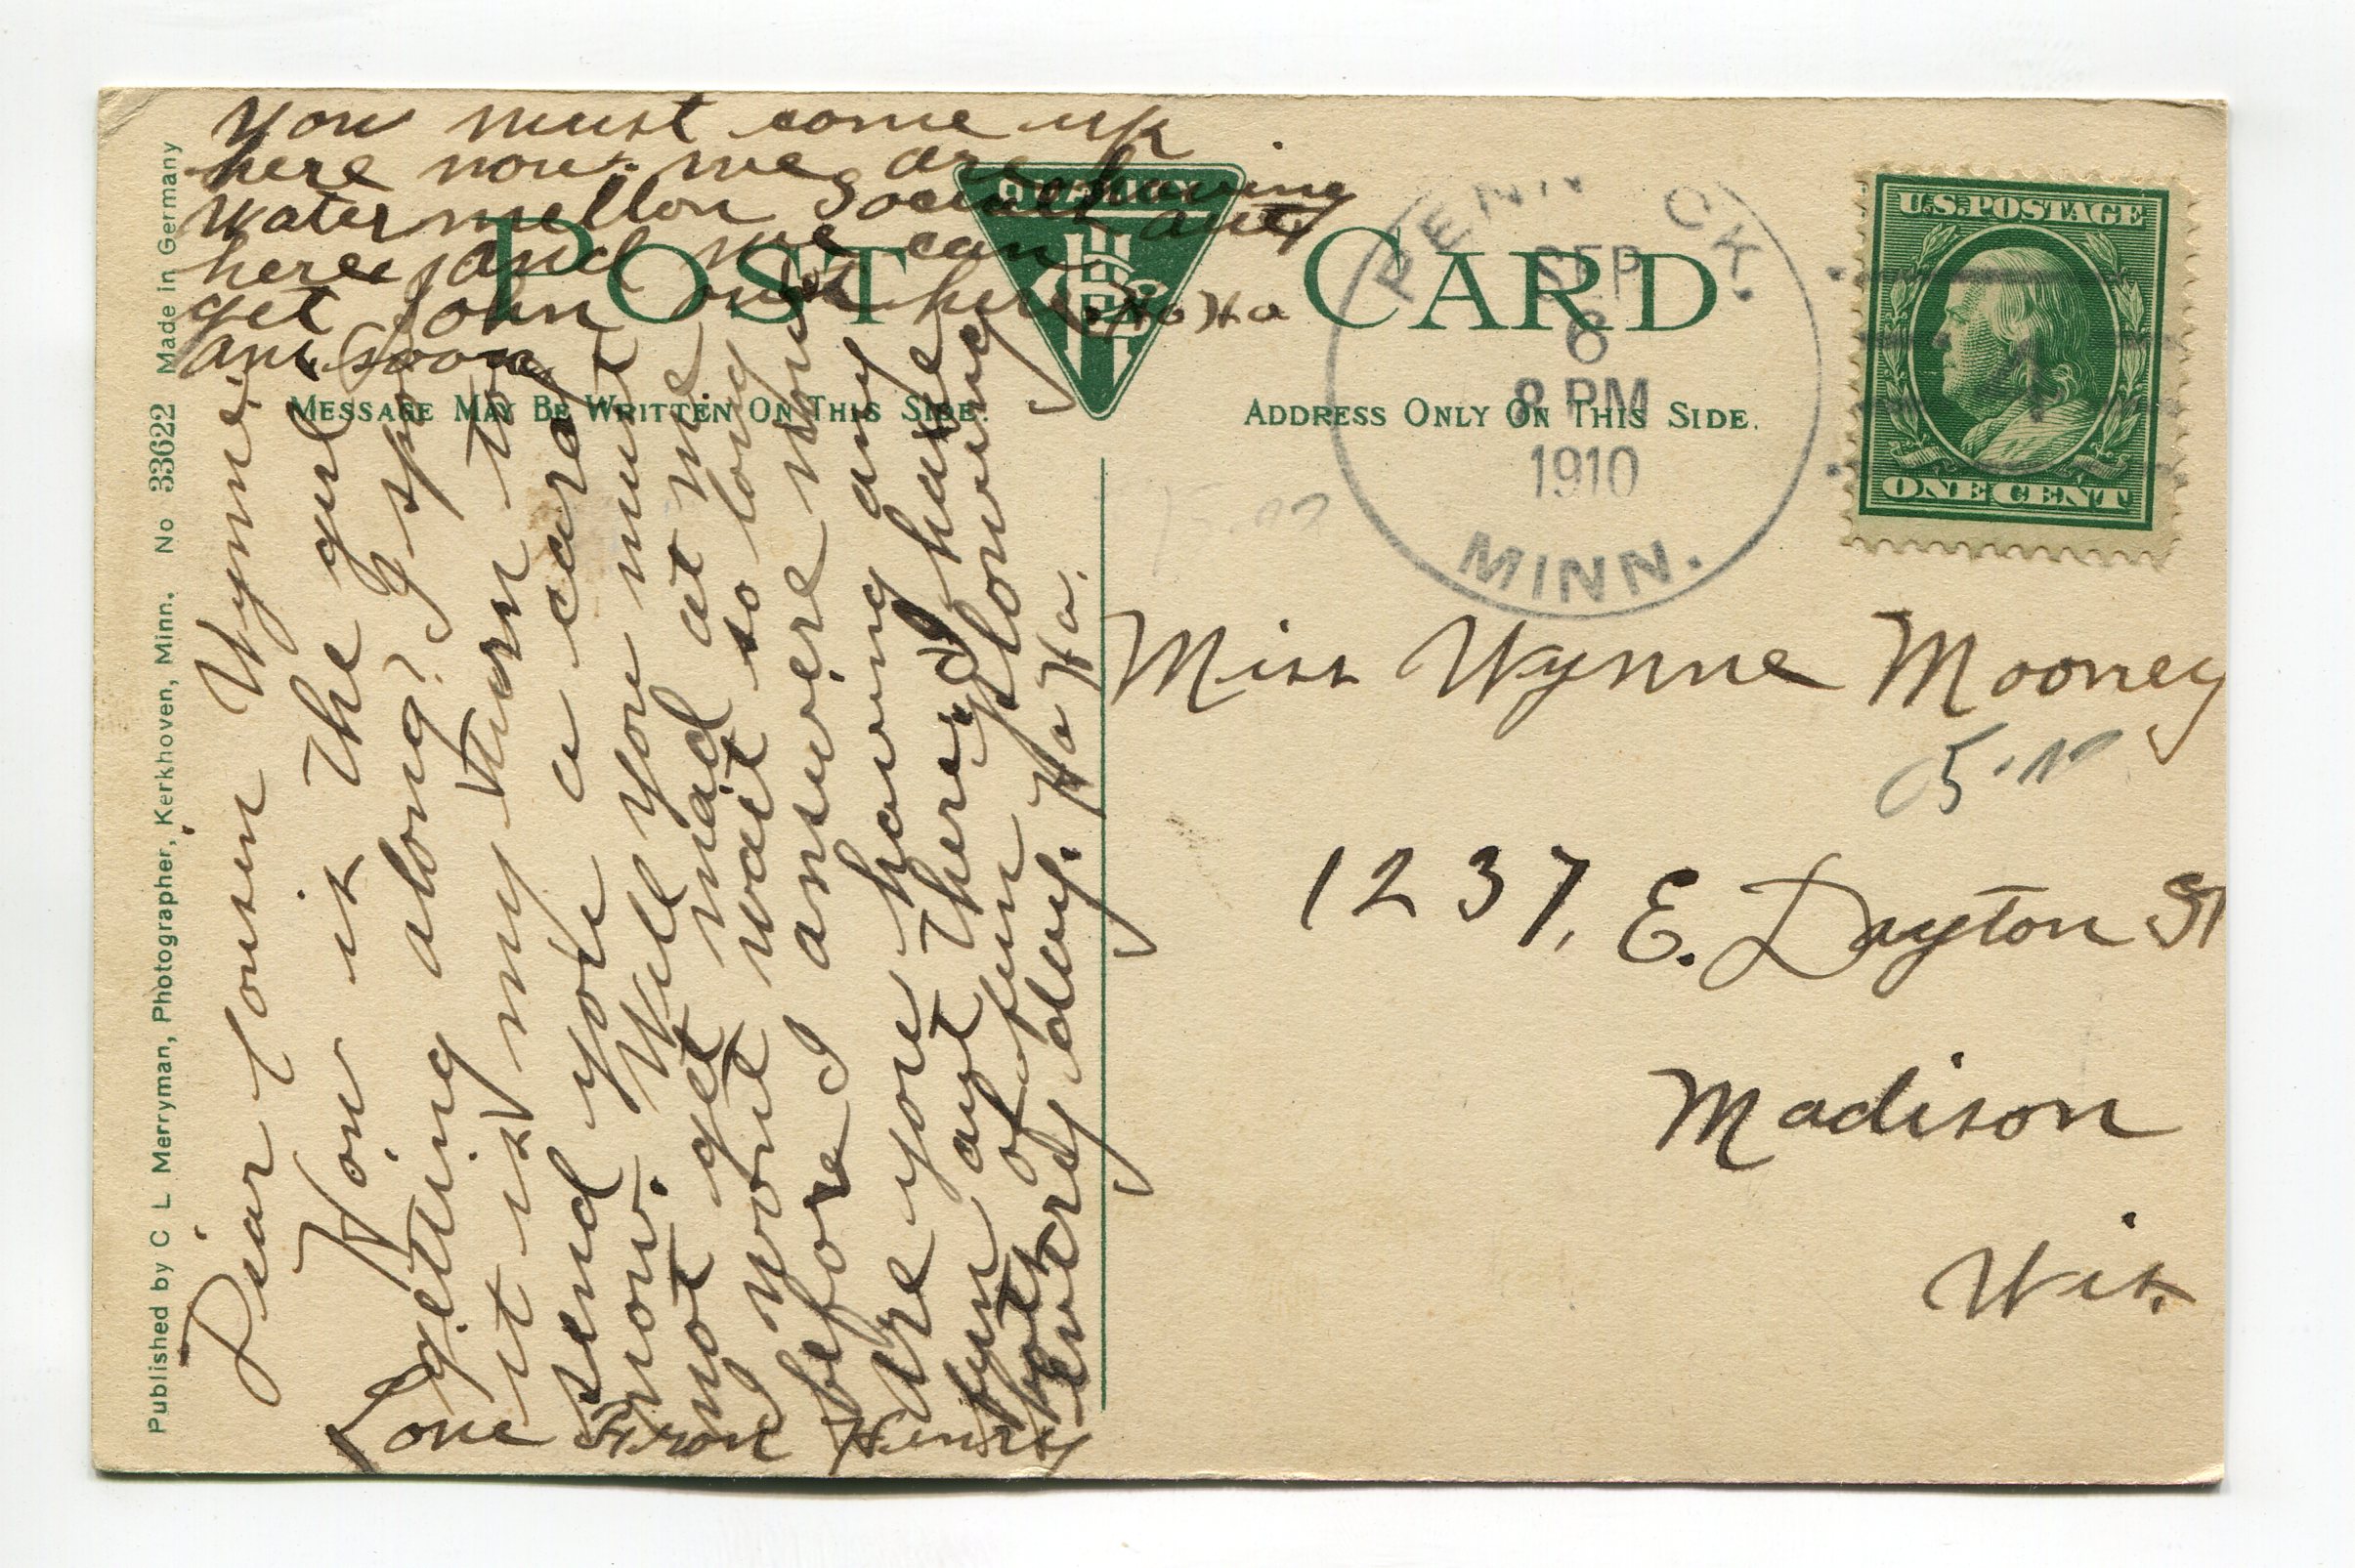 Dear Cousin Wynne:
How is the girl
getting along? I spose
it is my turn to
send you a card
now. Well you must
not get mad at me
I wont wait so long
before I answere now
Are you having any
fun out there, I have
lots of fun plowing
every day. Ha Ha.
Love From Henry
You must come up
here now. we are having
watermellon socials out
here, and we can
get John out here Ha Ha
ans. soon
POST CARD
MESSAGE MAY BE WRITTEN ON THIS SIDE.
ADDRESS ONLY ON THIS SIDE.
PENN CK.
SEP
6
8 PM
1910
MINN.
U.S. POSTAGE
4
ONE CENT
Miss Wynne Mooney
1237, E. Dayton St
Madison
Wis.
Published by C L Merryman, Photographer, Kerkhoven, Minn. No 33622 Made in Germany